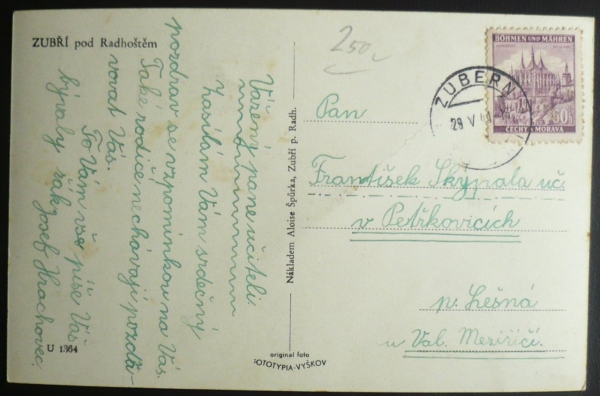 ZUBŘÍ pod Radhoštěm
250,-
Vážený pane učiteli
Zasílám Vám srdečný
pozdrav se vzpomínkou na Vás.
Také rodiče nechávají pozdra-
vovat Vás.
To Vám vše píše Váš
bývalý žák
Josef Hrachovec
U 1364
Nákladem Aloise Špůrka, Zubří p. Radh.
original foto
FOTOTYPIA-VYŠKOV
BÖHMEN UND MÄHREN
ČECHY A MORAVA
60
ZUBERN
29 V
Pan
František Skýpala uč.
v Petřkovicích
p. Lešná
u Val. Meziříčí.